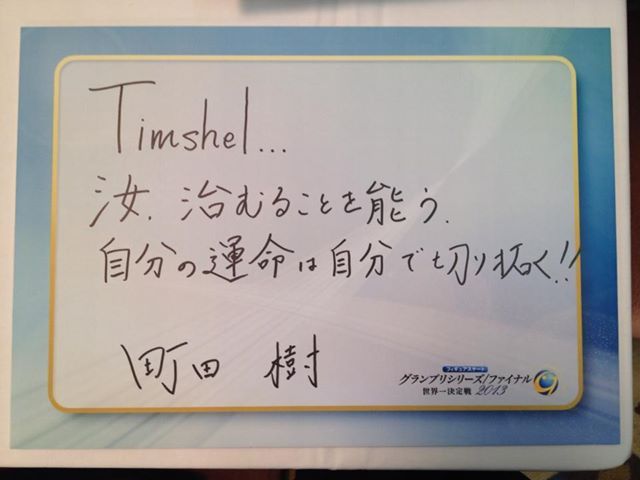 Timshel...
汝、治むることを能う.
自分の運命は自分で切り拓く!!
町田 樹
フィギュアスケート
グランプリシリーズ/ファイナル
世界一決定戦 2013